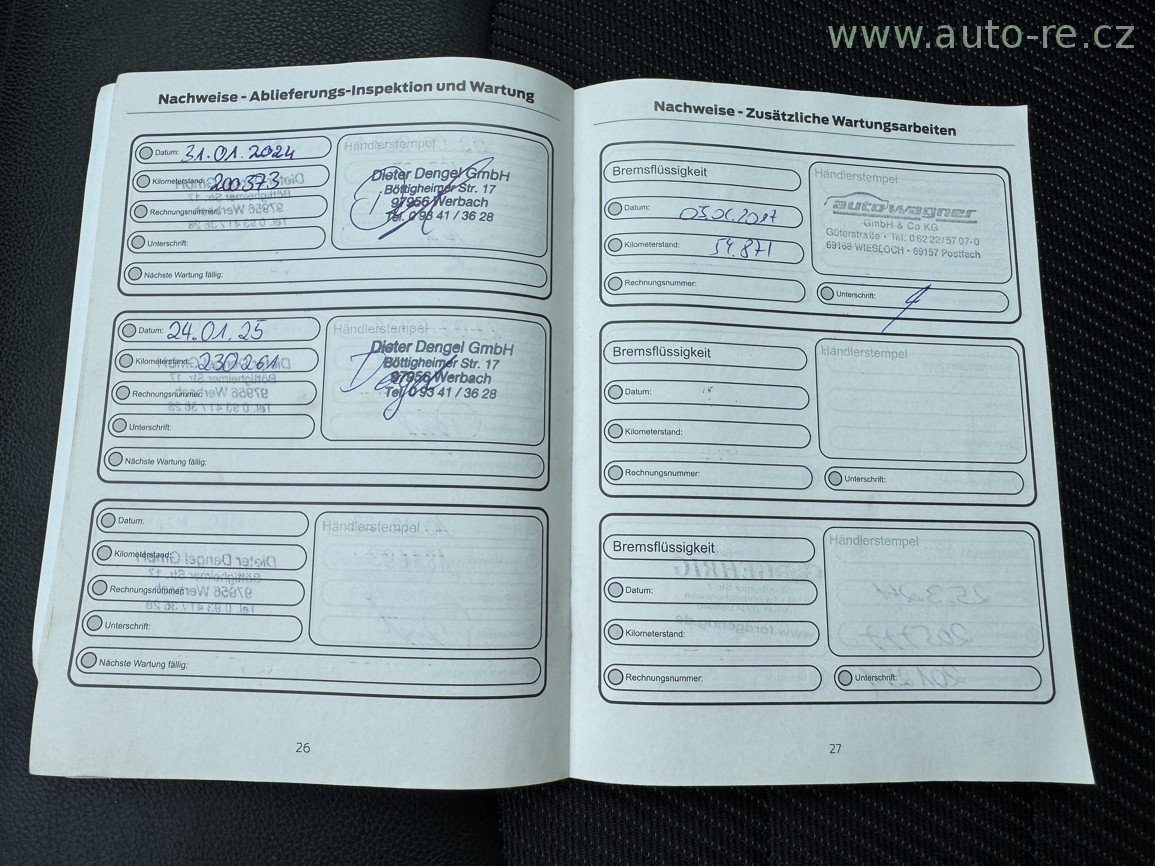 www.auto-re.cz
Nachweise - Ablieferungs-Inspektion und Wartung
Datum: 31.01.2024
Kilometerstand: 200.373
Rechnungsnummer:
Unterschrift:
Nächste Wartung fällig:
Händlerstempel
Dieter Dengel GmbH
Böttigheimer Str. 17
97956 Werbach
Tel. 0 93 41 / 36 28
Datum: 24.01.25
Kilometerstand: 230261
Rechnungsnummer:
Unterschrift:
Nächste Wartung fällig:
Händlerstempel
Dieter Dengel GmbH
Böttigheimer Str. 17
97956 Werbach
Tel. 0 93 41 / 36 28
Datum:
Kilometerstand:
Rechnungsnummer:
Unterschrift:
Nächste Wartung fällig:
Händlerstempel
26
Nachweise - Zusätzliche Wartungsarbeiten
Bremsflüssigkeit
Datum:
Kilometerstand: 54.871
Rechnungsnummer:
Händlerstempel
autowagner
GmbH & Co KG
Güterstraße • Tel. 0 62 22/57 07-0
69168 WIESLOCH • 69157 Postfach
Unterschrift:
Bremsflüssigkeit
Datum:
Kilometerstand:
Rechnungsnummer:
Händlerstempel
Unterschrift:
Bremsflüssigkeit
Datum:
Kilometerstand:
Rechnungsnummer:
Händlerstempel
Unterschrift:
27